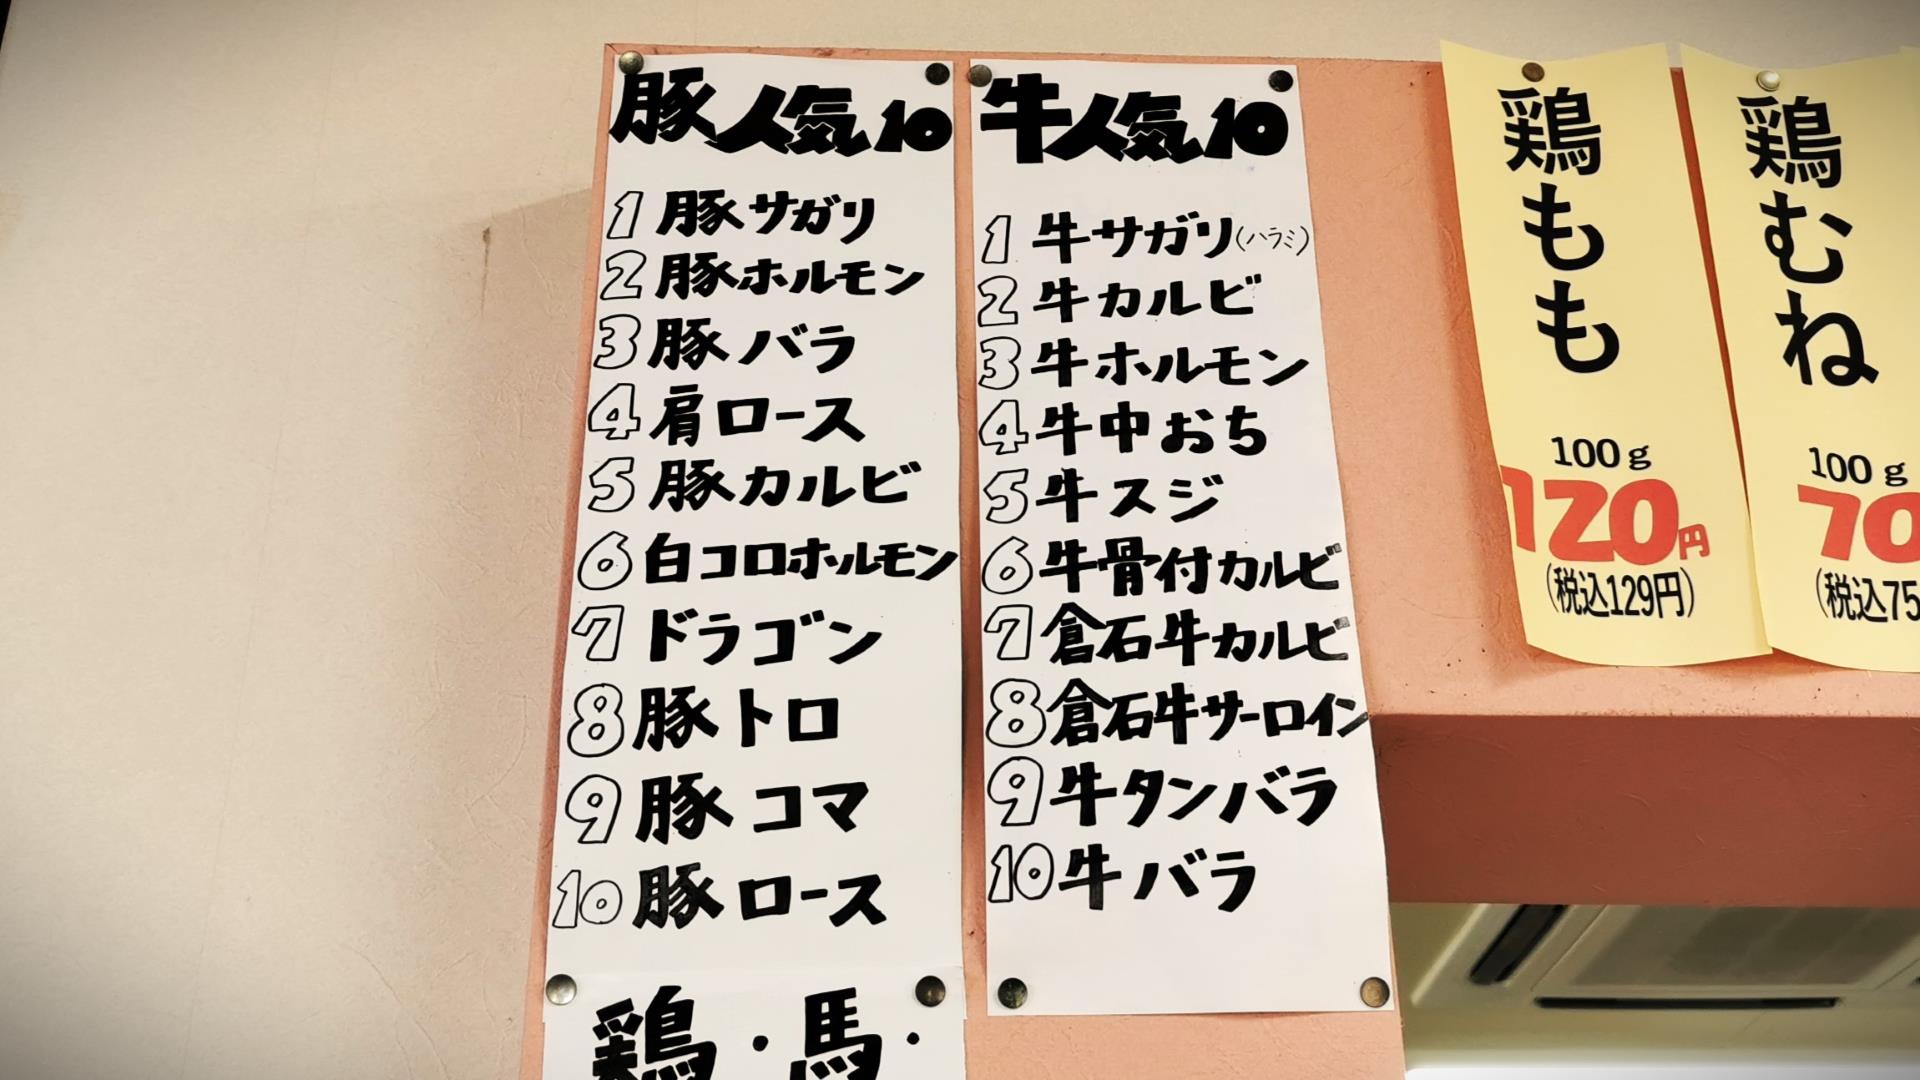 豚人気10
1 豚サガリ
2 豚ホルモン
3 豚バラ
4 肩ロース
5 豚カルビ
6 白コロホルモン
7 ドラゴン
8 豚トロ
9 豚コマ
10 豚ロース
鶏・馬・
牛人気10
1 牛サガリ(ハラミ)
2 牛カルビ
3 牛ホルモン
4 牛中おち
5 牛スジ
6 牛骨付カルビ
7 倉石牛カルビ
8 倉石牛サーロイン
9 牛タンバラ
10 牛バラ
鶏もも
100g
120円
(税込129円)
鶏むね
100g
70
(税込75